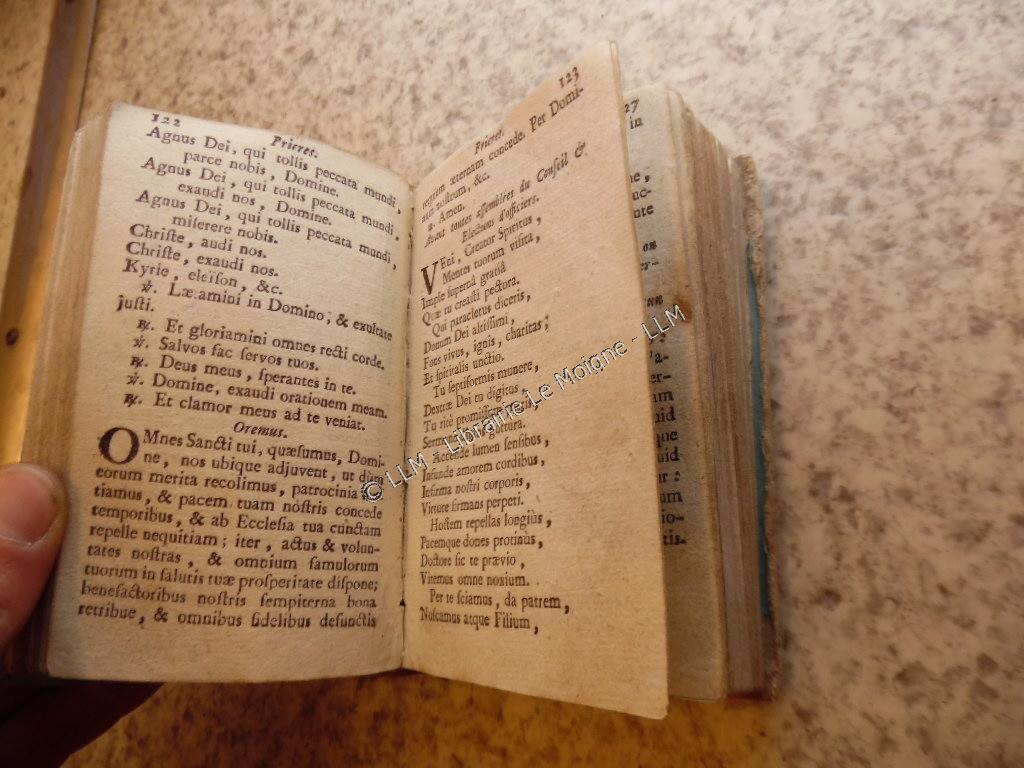 122
Prieres.
Agnus Dei, qui tollis peccata mundi,
parce nobis, Domine.
Agnus Dei, qui tollis peccata mundi,
exaudi nos, Domine.
Agnus Dei, qui tollis peccata mundi,
miserere nobis.
Christe, audi nos.
Christe, exaudi nos.
Kyrie, eleïson, &c.
℣. Lætamini in Domino, & exultate
justi.
℟. Et gloriamini omnes recti corde.
℣. Salvos fac servos tuos.
℟. Deus meus, sperantes in te.
℣. Domine, exaudi orationem meam.
℟. Et clamor meus ad te veniat.
Oremus.
OMnes Sancti tui, quæsumus, Domi-
ne, nos ubique adjuvent, ut dùm
eorum merita recolimus, patrocinia
tiamus, & pacem tuam nostris concede
temporibus, & ab Ecclesia tua cunctam
repelle nequitiam; iter, actus & volun-
tates nostras, & omnium famulorum
tuorum in salutis tuæ prosperitate dispone;
benefactoribus nostris sempiterna bona
retribue, & omnibus fidelibus defunctis
123
Prieres.
requiem æternam concede. Per Domi-
num nostrum, &c.
℟. Amen.
Avant toutes assemblées du Conseil &
Elections d'officiers.
VEni, Creator Spiritus,
Mentes tuorum visita,
Imple supernâ gratiâ
Quæ tu creasti pectora.
Qui paracletus diceris,
Donum Dei altissimi,
Fons vivus, ignis, charitas;
Et spiritalis unctio.
Tu septiformis munere,
Dextræ Dei tu digitus,
Tu ritè promissum
Sermone guttura.
Accende lumen sensibus,
Infunde amorem cordibus,
Infirma nostri corporis,
Virtute firmans perpeti.
Hostem repellas longiùs,
Pacemque dones protinùs,
Ductore sic te prævio,
Vitemus omne noxium.
Per te sciamus, da patrem,
Noscamus atque Filium,
27
in
© LLM - Librairie Le Moigne - LLM